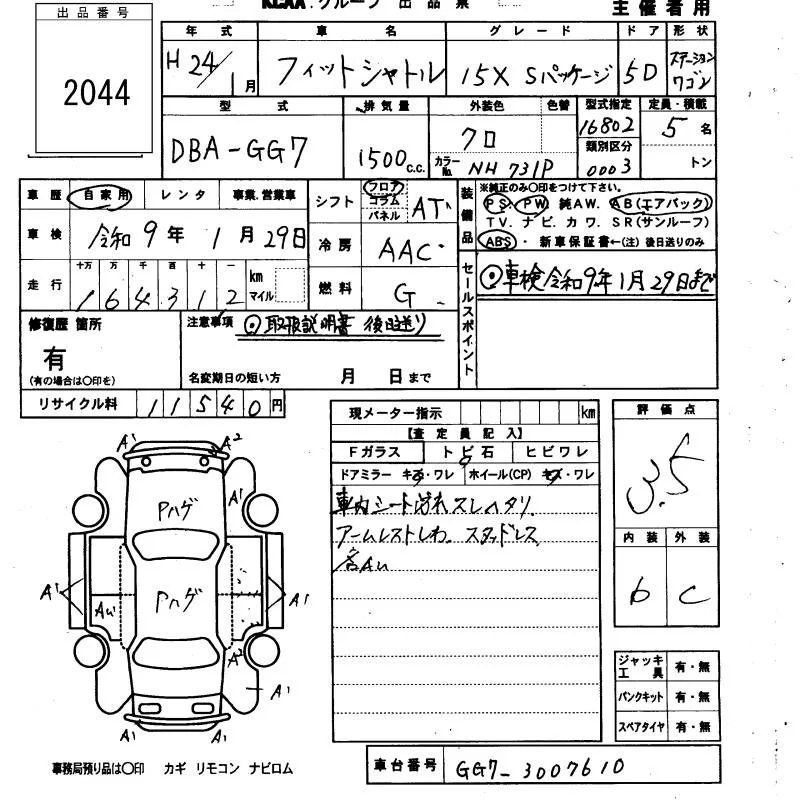 出品番号
2044
KCAA.グループ 出品票
主催者用
年式 車名 グレード ドア 形状
H24/1月 フィットシャトル 15X Sパッケージ 5D ステーションワゴン
型式 排気量 外装色 色替 型式指定 定員・積載
DBA-GG7 1500c.c. クロ 16802 5名
カラーNo. NH731P 類別区分 0003 トン
車歴 自家用 レンタ 事業.営業車
車検 令和9年1月29日
走行 十万 万 千 百 十 一 km マイル
164312
シフト フロア コラム パネル AT
冷房 AAC
燃料 G
装備品 ※純正のみ○印をつけて下さい。
PS・PW・純AW.AB(エアバック)
TV.ナビ.カワ.SR(サンルーフ)
ABS・新車保証書←(注)後日送りのみ
セールスポイント ◎車検令和9年1月29日まで
修復歴 箇所
有
(有の場合は○印を)
注意事項 ◎取扱説明書 後日送り
名変期日の短い方 月 日まで
リサイクル料 11540円
現メーター指示 km
【査定員記入】
Fガラス トビ石 ヒビワレ
ドアミラー キズ・ワレ ホイール(CP) キズ・ワレ
車内シート汚れスレヘタリ.
アームレストしわ. スタッドレス
各AU
評価点
3.5
内装 外装
b C
ジャッキ工具 有・無
パンクキット 有・無
スペアタイヤ 有・無
A1 A2
Pハゲ A1
A1 AU Pハゲ A1
A2
A1
A1 A1
事務局預り品は○印 カギ リモコン ナビロム
車台番号 GG7-3007610